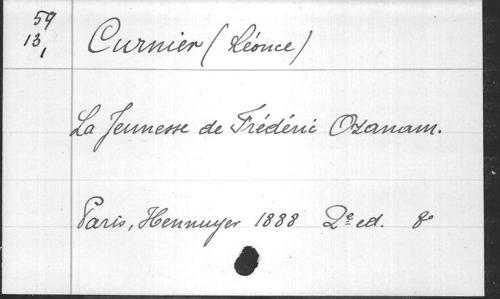 59
13
1
Curnier (Léonce)
La Jeunesse de Frédéric Ozanam.
Paris, Hennuyer 1888 2e ed. 8o